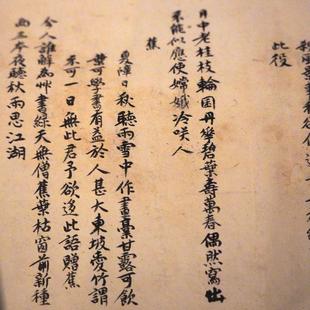 此役
月中老桂枝輪囷丹華碧葉壽萬春偶然寫出
不能似應使嫦娥冷咲人
蕉
夏障日秋聽雨雪中作畫稾甘露可飲
葉可學書有益於人甚大東坡愛竹謂
不可一日無此君予欲迻此語贈蕉
今人誰解為艸書綠天無僧蕉葉枯窗前新種
兩三本夜聽秋雨思江湖